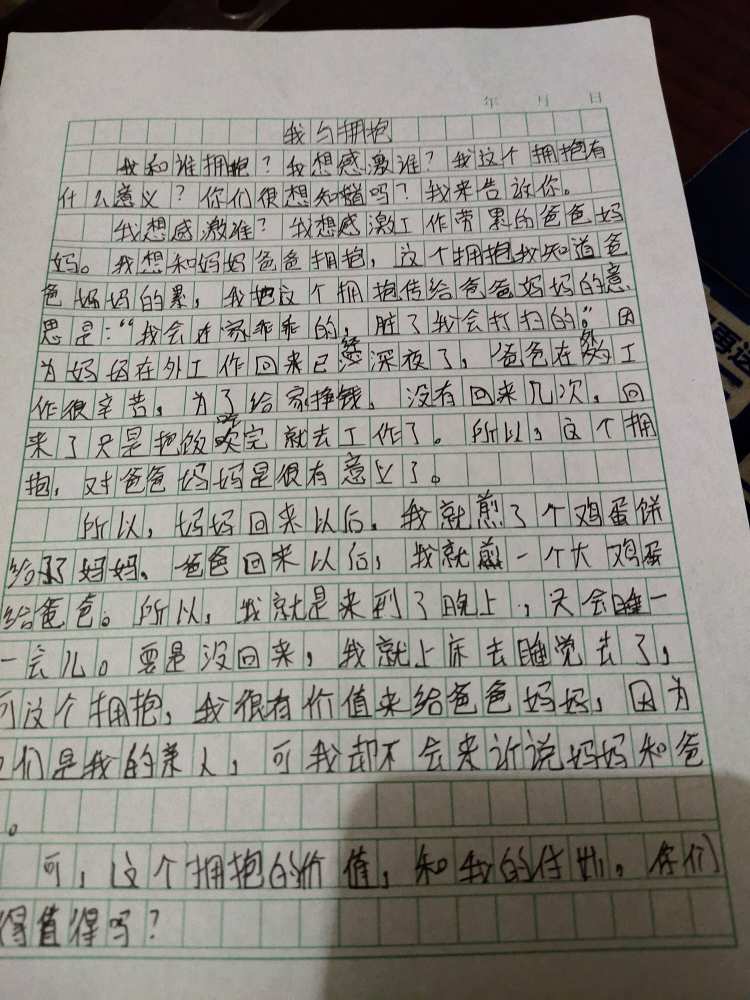 年 月 日
我与拥抱
我和谁拥抱？我想感激谁？我这个拥抱有
什么意义？你们很想知道吗？我来告诉你。
我想感激谁？我想感激工作劳累的爸爸妈
妈。我想和妈妈爸爸拥抱，这个拥抱我知道爸
爸妈妈的累，我把这个拥抱传给爸爸妈妈的意
思是：“我会在家乖乖的，脏了我会打扫的。”因
为妈妈在外工作回来已经深夜了，爸爸在外工
作很辛苦，为了给家挣钱，没有回来几次，回
来了只是把饭吃完就去工作了。所以，这个拥
抱，对爸爸妈妈是很有意义了。
所以，妈妈回来以后，我就煎了个鸡蛋饼
给了妈妈、爸爸回来以后，我就煎一个大鸡蛋
给爸爸。所以，我就是来到了晚上，只会睡一
一会儿。要是没回来，我就上床去睡觉去了，
可这个拥抱，我很有价值来给爸爸妈妈，因为
们是我的亲人，可我却不会来诉说妈妈和爸
。
可，这个拥抱的价值，和我的 你们
得值得吗？
再运